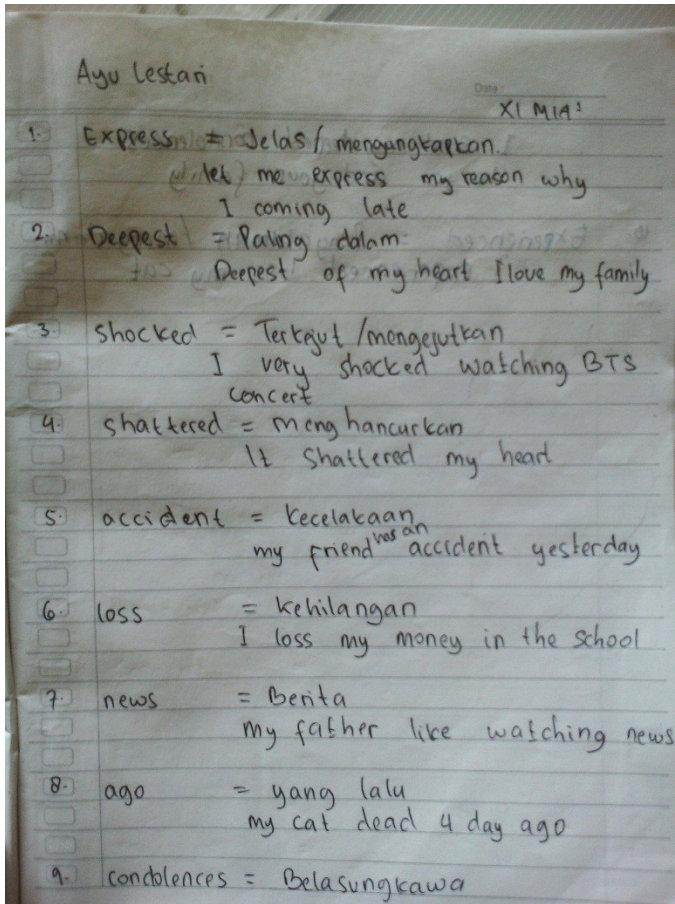 Ayu Lestari
Date:
XI MIA¹
1. Express = Jelas / mengungkapkan.
let me express my reason why
I coming late
2. Deepest = Paling dalam
Deepest of my heart I love my family
3. shocked = Terkejut / mengejutkan
I very shocked watching BTS
concert
4. shattered = menghancurkan
It shattered my heart
5. accident = kecelakaan
my friend has an accident yesterday
6. loss = kehilangan
I loss my money in the school
7. news = Berita
my father like watching news
8. ago = yang lalu
my cat dead 4 day ago
9. condolences = Belasungkawa